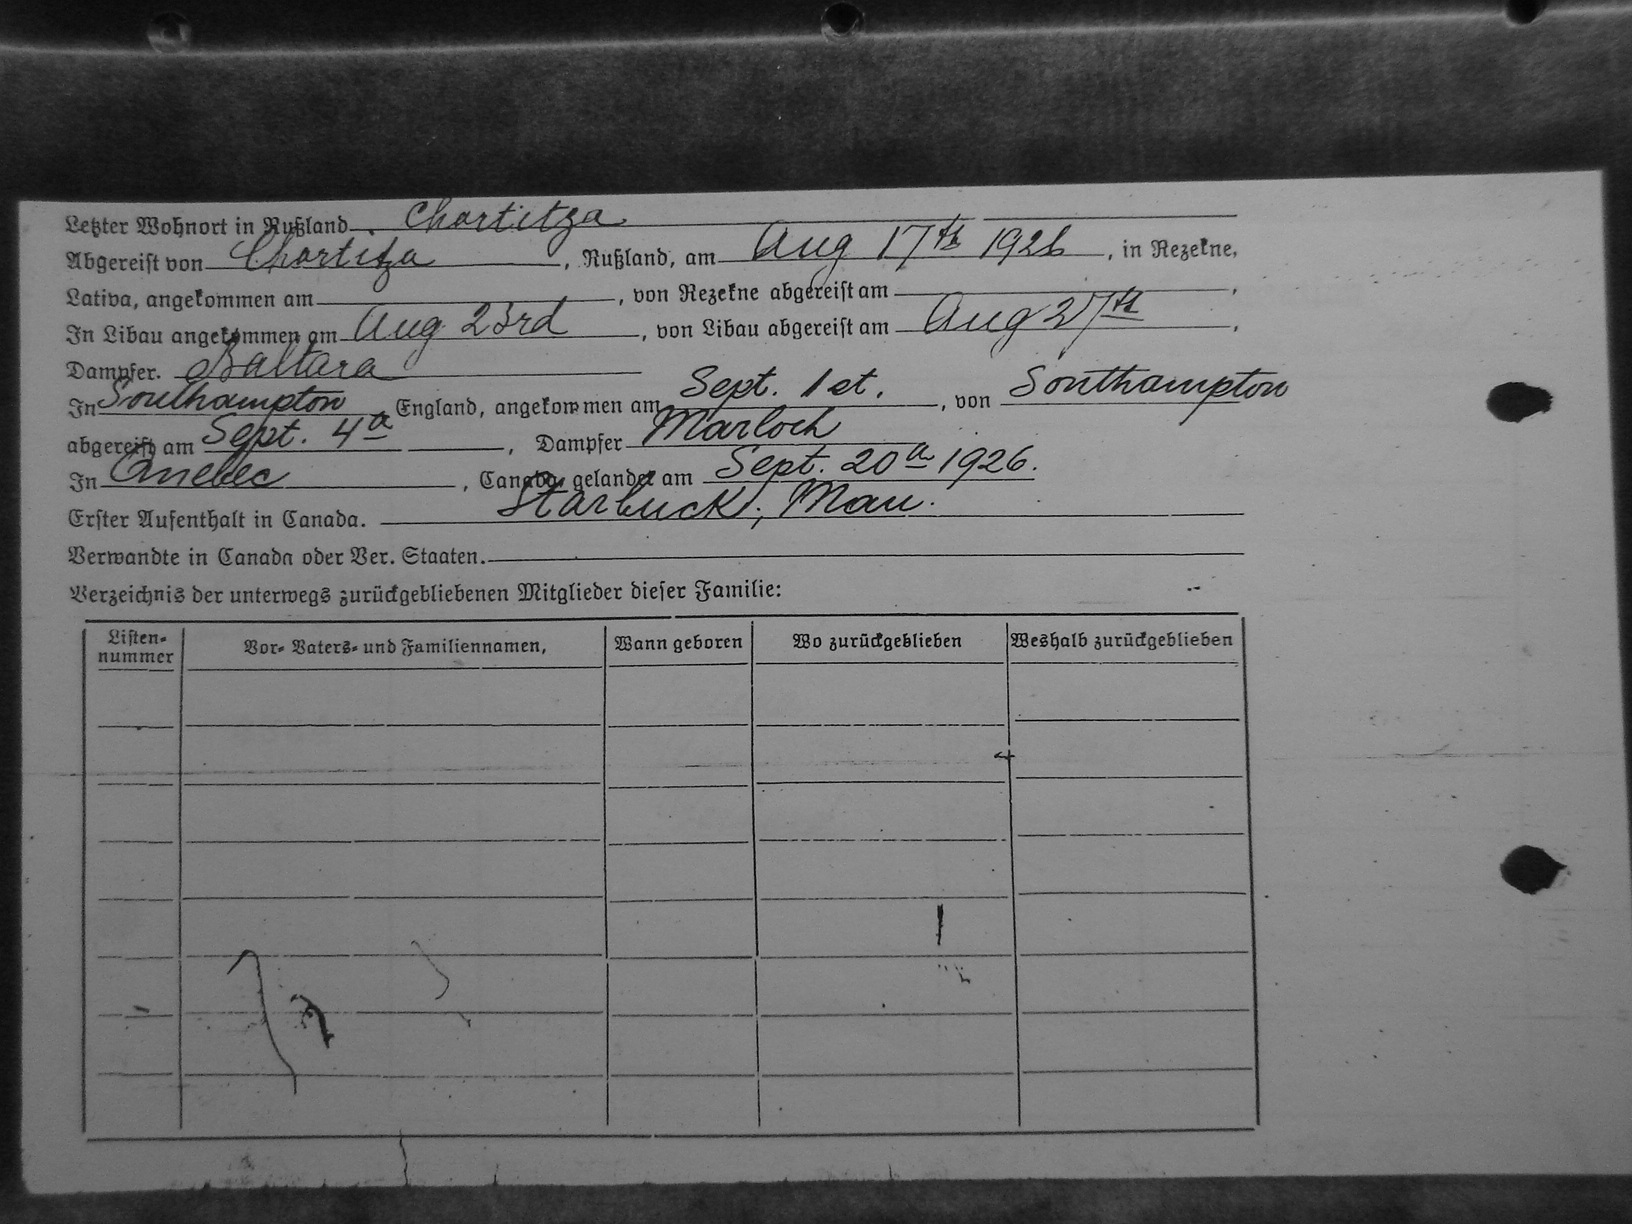 Letzter Wohnort in Rußland. Chortitza
Abgereist von Chortitza, Rußland, am Aug 17th 1926, in Rezekne,
Lativa, angekommen am , von Rezekne abgereist am ,
In Libau angekommen am Aug 23rd, von Libau abgereist am Aug 27th,
Dampfer. Baltara
In Southampton, England, angekommen am Sept. 1st., von Southampton
abgereist am Sept. 4th, Dampfer Marloch
In Quebec, Canada, gelandet am Sept. 20th 1926.
Erster Aufenthalt in Canada. Starbuck, Man.
Verwandte in Canada oder Ver. Staaten.
Verzeichnis der unterwegs zurückgebliebenen Mitglieder dieser Familie:
Listen-
nummer
Vor- Vaters- und Familiennamen,
Wann geboren
Wo zurückgeblieben
Weshalb zurückgeblieben